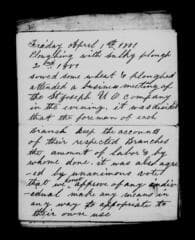 Friday April 1st 1881
Ploughing with sulky plough
2nd
sowed some wheat & ploughed
attended a business meeting of
the St Joseph U O company
in the evening. it was decided
that the foreman of each
branch keep the accounts
of their respected branches
the amount of labor & by
whome done. it was also agre
-ed by unanimous vote
that we approve of any indiv-
-idual make any means in
any way to appropiate to
their own use